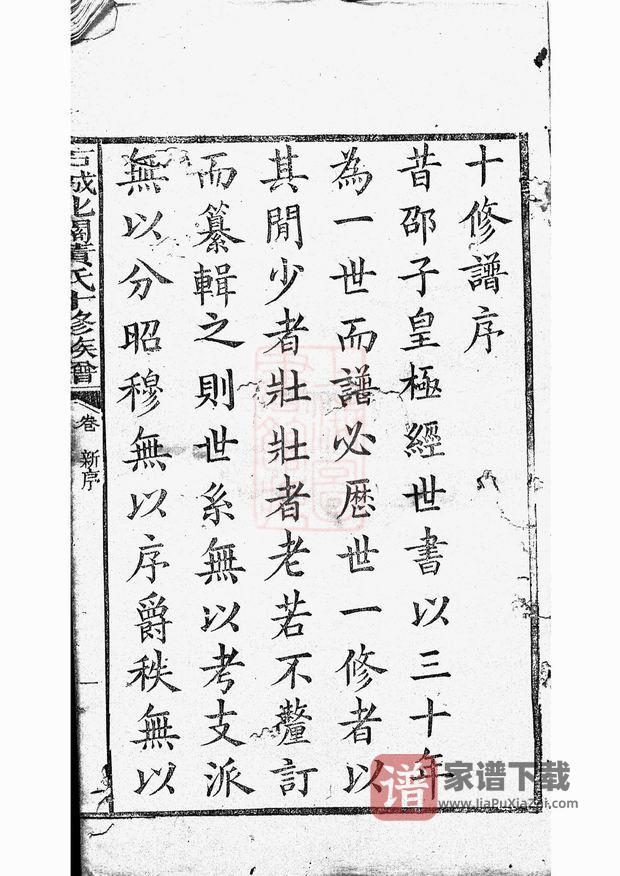 十修譜序
昔邵子皇極經世書以三十年
為一世而譜必歷世一修者以
其閒少者壯壯者老若不釐訂
而纂輯之則世系無以考支派
無以分昭穆無以序爵秩無以
石城北關黄氏十修族譜
卷 新序
谱 家谱下载
www.JiaPuXiaZai.com